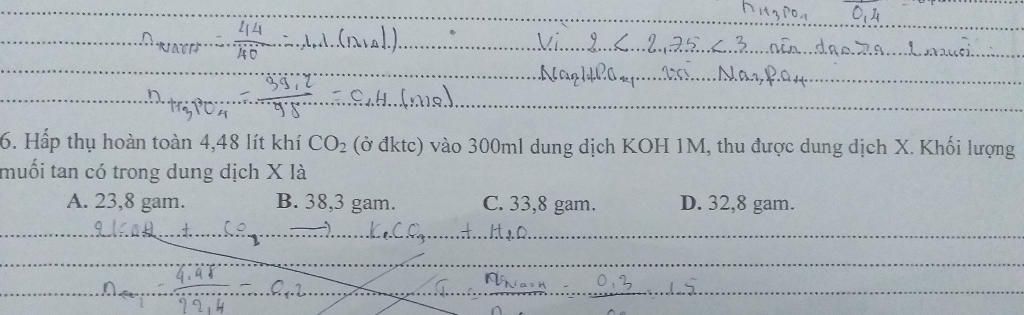 n H3PO4 0,4
n NaOH = 44/40 = 1,1 (mol) Vì 2 < 2,75 < 3 nên tạo ra 2 muối
Na2HPO4 và Na3PO4
n H3PO4 = 39,2/98 = 0,4 (mol)
6. Hấp thụ hoàn toàn 4,48 lít khí CO2 (ở đktc) vào 300ml dung dịch KOH 1M, thu được dung dịch X. Khối lượng
muối tan có trong dung dịch X là
A. 23,8 gam. B. 38,3 gam. C. 33,8 gam. D. 32,8 gam.
2KOH + CO2 → K2CO3 + H2O
n CO2 = 4,48/22,4 = 0,2 T = n NaOH = 0,3 = 1,5